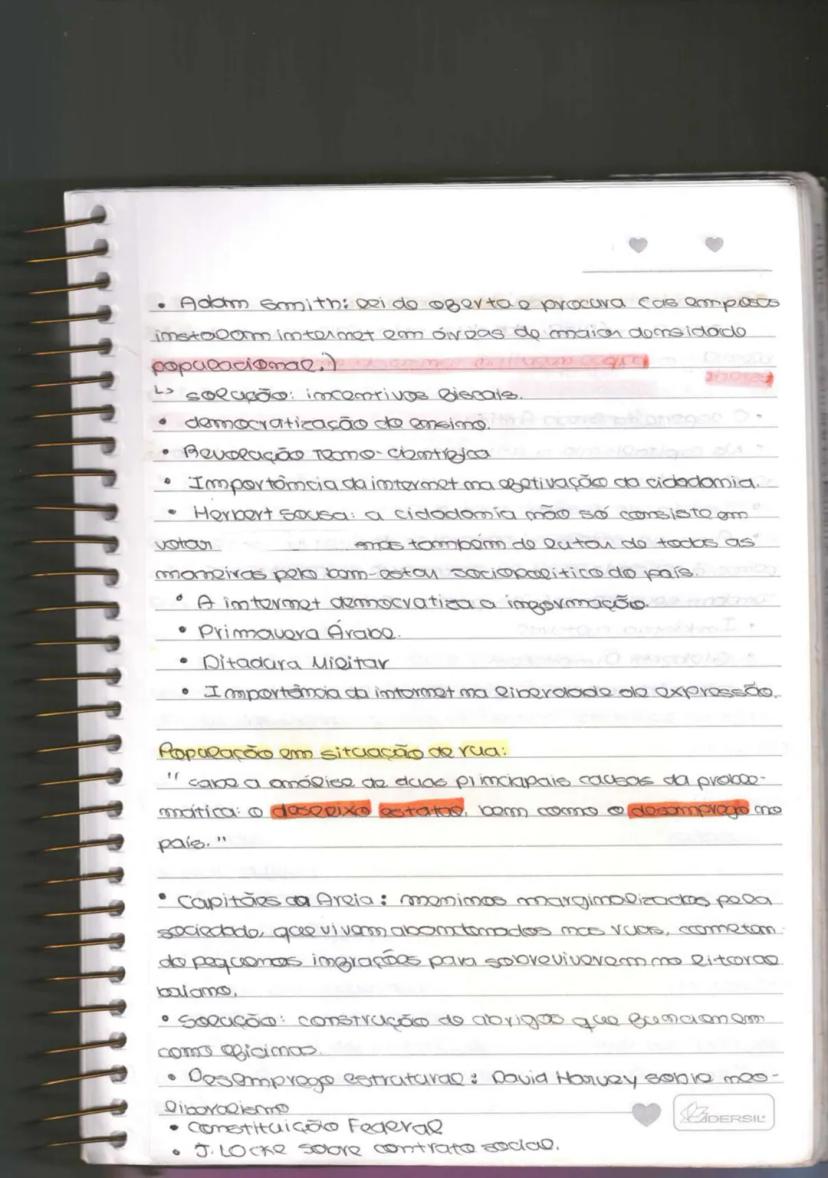 • Adam Smith: lei de oferta e procura (as empresas
instalam internet em áreas de maior densidade
populacional.)
↳ solução: incentivos fiscais.
• democratização do ensino.
• Revolução Tecno-científica
• Importância da internet na efetivação da cidadania.
• Herbert Sousa: a cidadania não só consiste em
votar mas também de lutar de todas as
maneiras pelo bem-estar sociopolítico do país.
• A internet democratiza a informação.
• Primavera Árabe.
• Ditadura Militar
• Importância da internet na liberdade de expressão.
População em situação de rua:
" cabe a análise de duas principais causas da proble-
mática: o desleixo estatal, bem como o desemprego no
país."
• Capitães da Areia: meninos marginalizados pela
sociedade, que vivem abandonados nas ruas, cometen-
do pequenas infrações para sobreviverem no litoral
baiano.
• Solução: construção de abrigos que funcionem
como oficinas.
• Desemprego estrutural: David Harvey sobre neo-
liberalismo
• Constituição Federal
• J. Locke sobre contrato social.